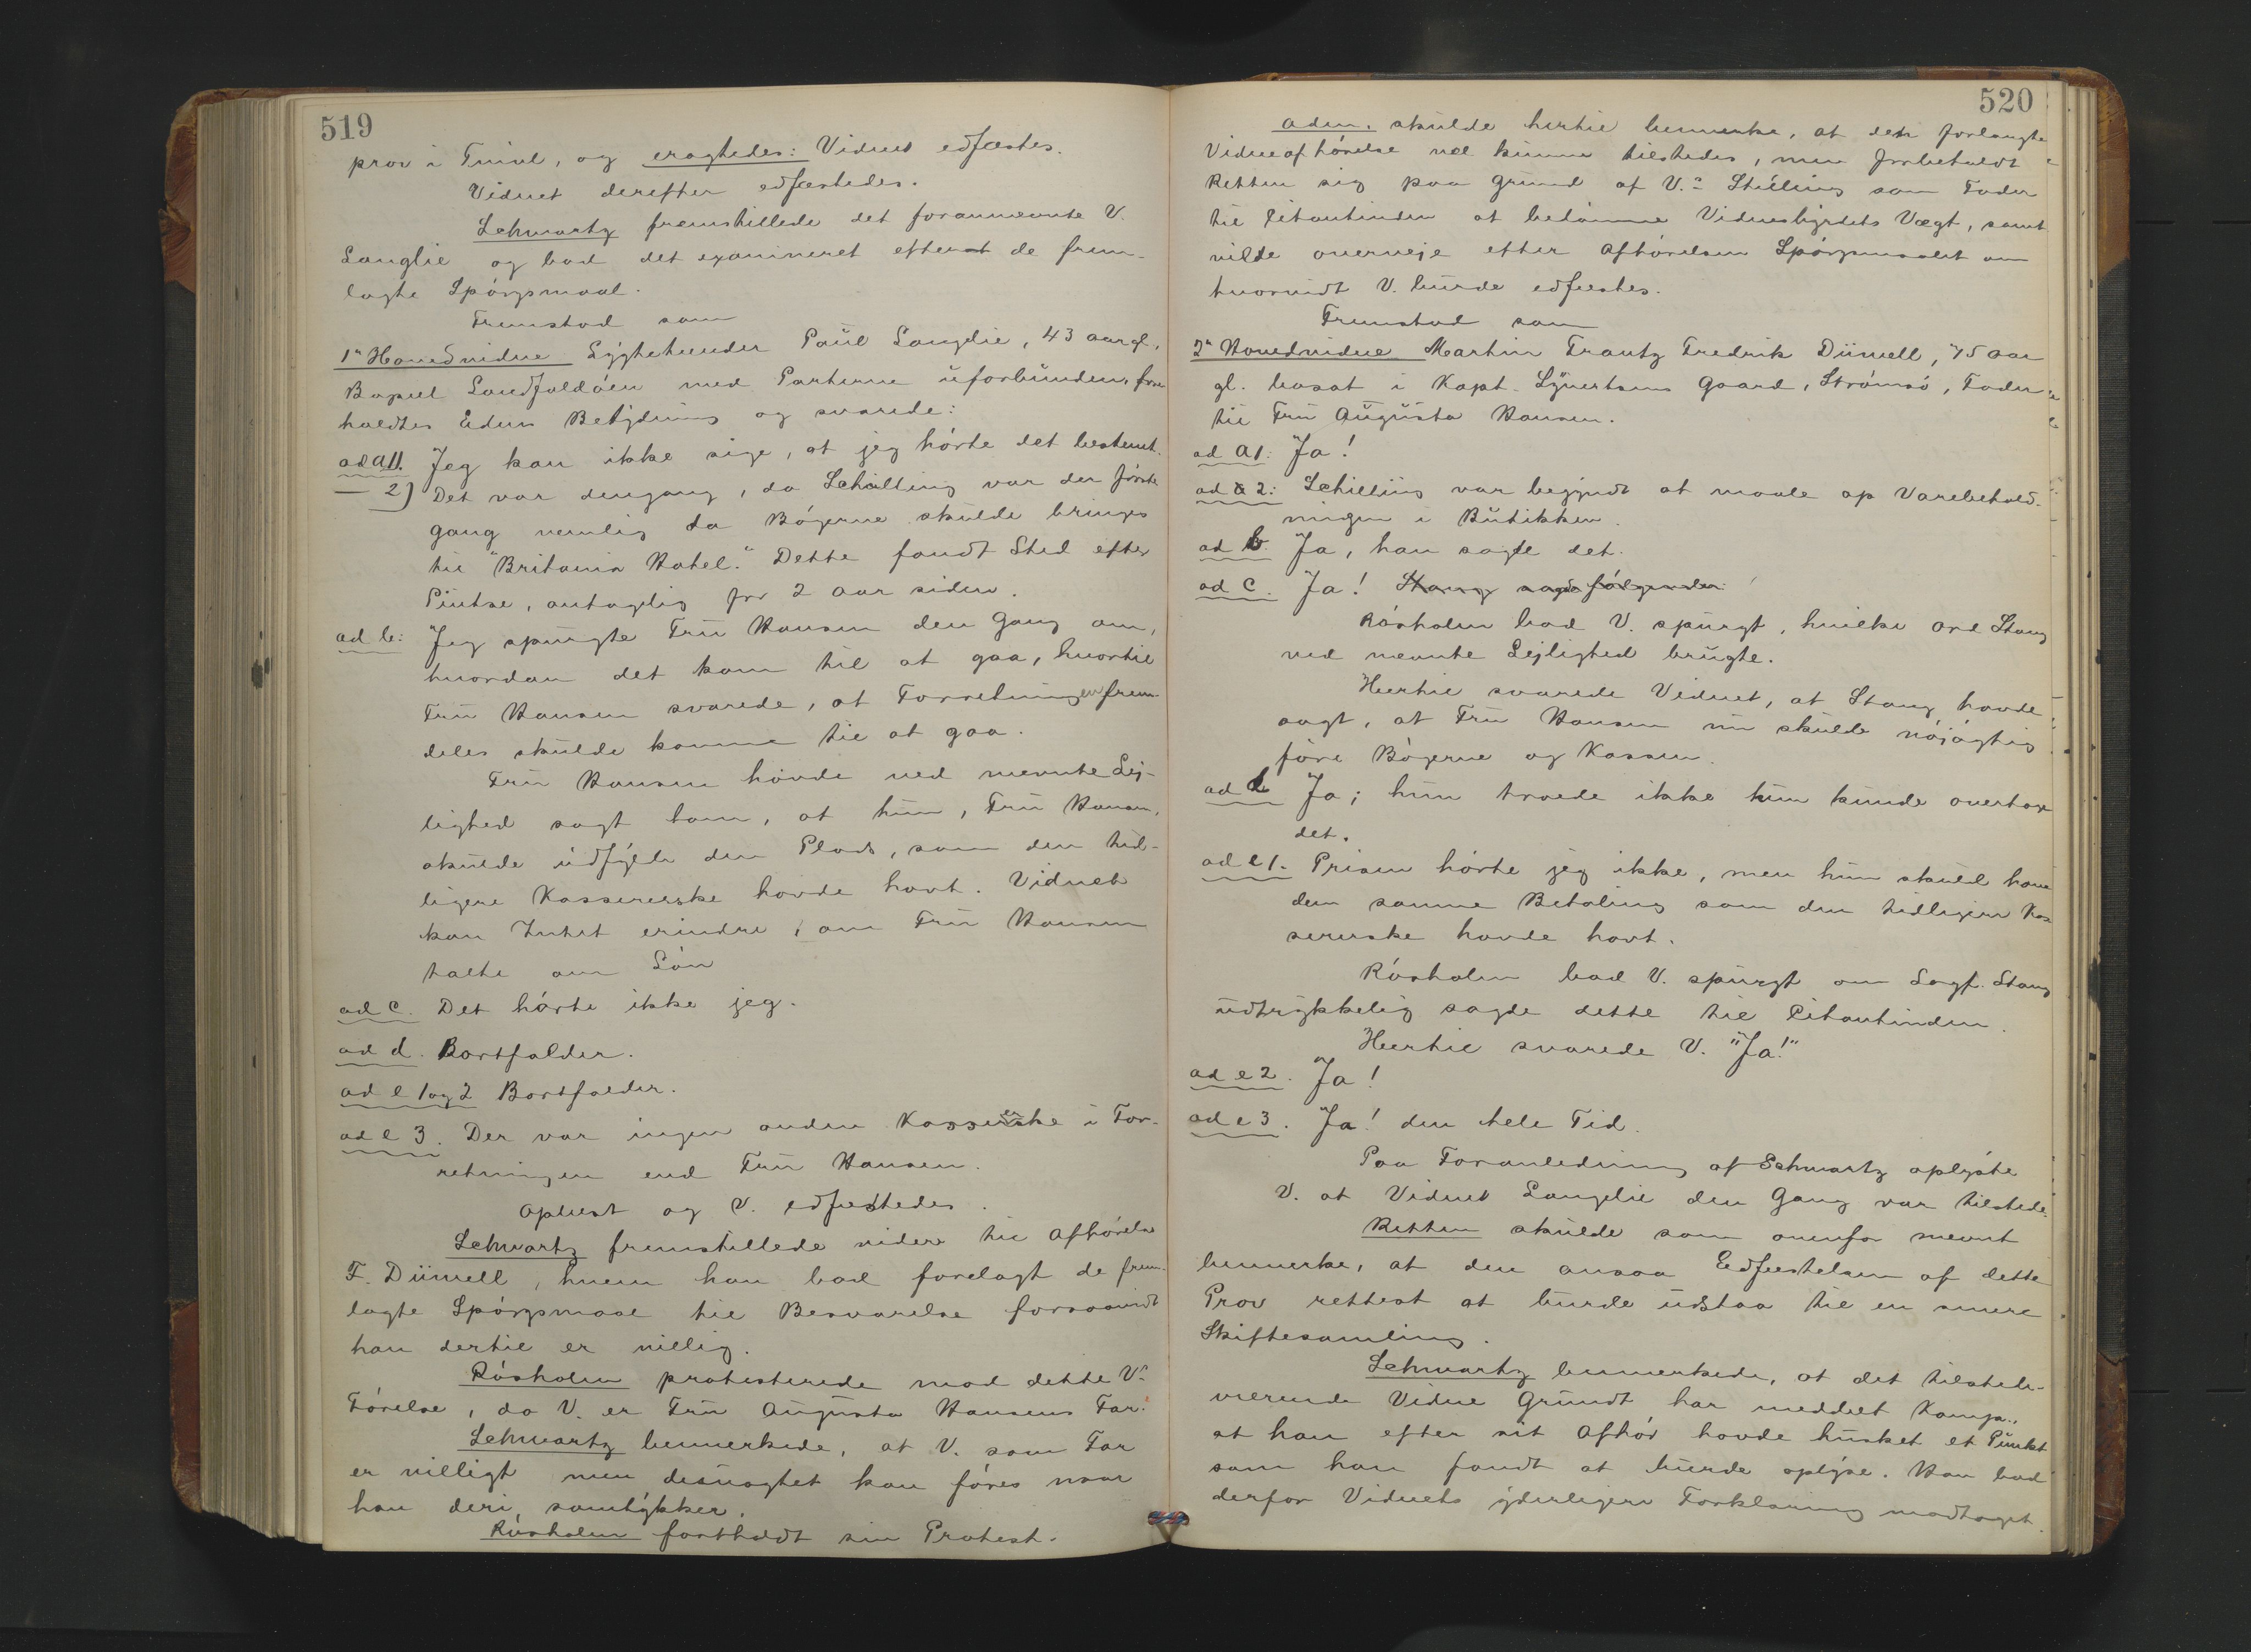 519
prov i Tvivl, og eragtedes: Vidnet edfæstes.
Vidnet derefter edfæstedes.
Schwartz fremstillede det forannævnte V.
Langlie og bad det examineret efter de frem-
lagte Spörgsmaal.
Fremstod som
1ste Hovedvidne Lygtetænder Paul Langlie, 43 aar gl.,
Bopæl Landfaldöen med Parterne uforbunden, fore
holdtes Edens Betydning og svarede:
ad a 1). Jeg kan ikke sige, at jeg hörte det bestemt.
— 2) Det var dengang, da Schilling var der förste
Gang nemlig da Bögerne skulde bringes
til "Britania Hotel." Dette fandt Sted efter
Pintse, antagelig for 2 Aar siden.
ad b: Jeg spurgte Fru Hansen den Gang om,
hvordan det kom til at gaa, hvortil
Fru Hansen svarede, at Forretningen frem-
deles skulde komme til at gaa.
Fru Hansen havde ved nævnte Lej-
lighed sagt ham, at hun, Fru Hansen,
skulde udfylde den Plads, som den tid-
ligere Kassererske havde havt. Vidnet
kan Intet erindre, om Fru Hansen
talte om Lön
ad c. Det hörte ikke jeg.
ad d. Bortfalder.
ad e 1 og 2 Bortfalder.
ad e 3. Der var ingen anden Kassererske i For-
retningen end Fru Hansen.
Oplæst og V. edfæstedes.
Schwartz fremstillede videre til Afhörelse
F. Düvell, hvem han bad forelagt de frem-
lagte Spörgsmaal til Besvarelse forsaavidt
han dertil er villig.
Rösholm protesterede mod dette V.s
Förelse, da V. er Fru Augusta Hansens Far.
Schwartz bemerkede, at V. som Far
er villigt men desuagtet kan föres naar
han deri samtykker.
Rösholm fortholdt sin Protest.
520
Adm. skulde hertil bemerke, at den forlangte
Vidneafhörelse vel kunne tilstedes, men forbeholdt
Retten sig paa Grund af V.s Stilling som Fader
til Citantinden at bedömme Vidnesbyrdets Vægt, samt
vilde overveje efter Afhörelsen Spörgsmaalet om
hvorvidt V. burde edfæstes.
Fremstod som
2det Hovedvidne Martin Frantz Fredrik Düvell, 75 Aar
gl. bosat i Kapt. Syvertsens Gaard, Strömsö, Fader
til Fru Augusta Hansen.
ad a 1: Ja!
ad a 2: Schilling var begyndt at maale op Varebehold-
ningen i Butikken.
ad b. Ja, han sagde det.
ad c. Ja! Stang sagde fölgende:
Rösholm bad V. spurgt, hvilke Ord Stang
ved nævnte Lejlighed brugte.
Hertil svarede Vidnet, at Stang havde
sagt, at Fru Hansen nu skulde nöjagtig
före Bögerne og Kassen.
ad d Ja; hun troede ikke hun kunde overtage
det.
ad e 1. Prisen hörte jeg ikke, men hun skulde have
den samme Betaling som den tidligere Kas-
sererske havde havt.
Rösholm bad V. spurgt om Sagf. Stang
udtrykkelig sagde dette til Citantinden.
Hertil svarede V. "Ja!"
ad e 2. Ja!
ad e 3. Ja! den hele Tid.
Paa Foranledning af Schwartz oplyste
V. at Vidnet Langelie den Gang var tilstede.
Retten skulde som ovenfor nævnt
bemerke, at den ansaa Edfæstelsen af dette
Prov rettest at burde udstaa til en senere
Skiftesamling.
Schwartz bemerkede, at det tilstede-
værende Vidne Grundt har meddelt Komp.,
at han efter sit Afhör havde husket et Punkt
som han fandt at burde oplyse. Han bad
derfor Vidnets yderligere Forklaring modtaget.